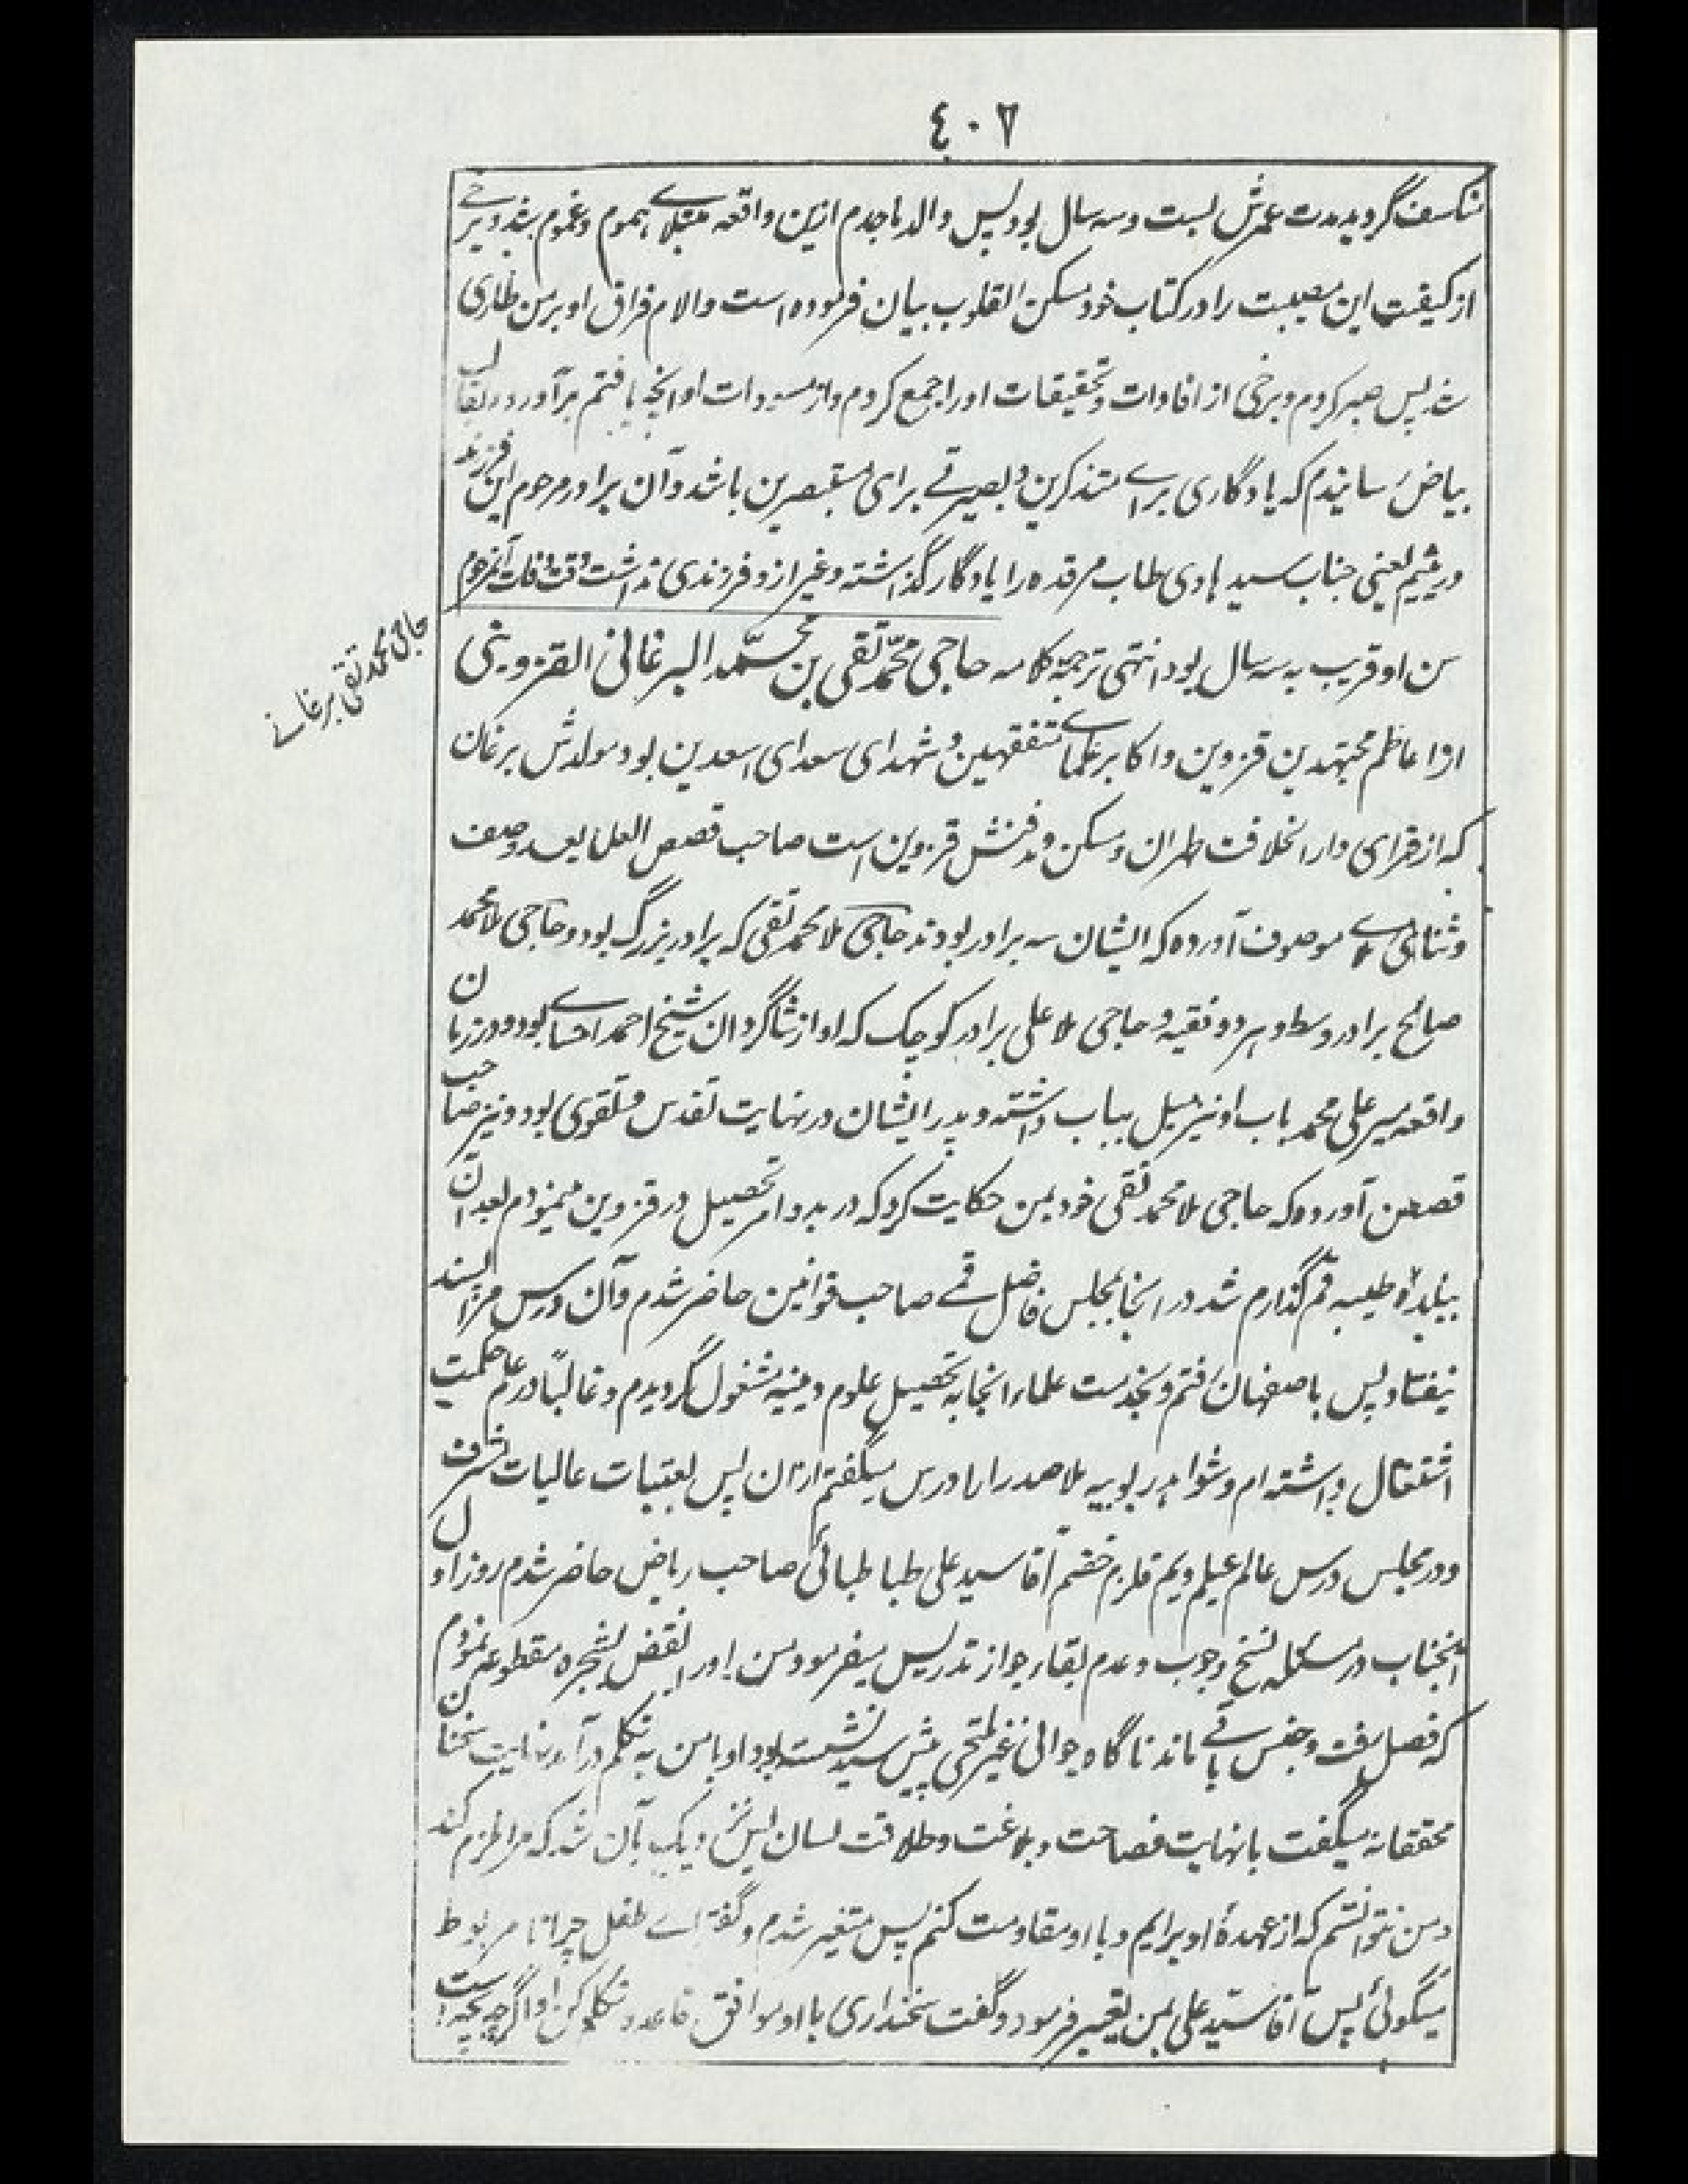 ٤٠٢
منکسف گردید مدت عمرش بست و سه سال بود پس والد ماجدم ازین واقعه مبتلاے هموم و غموم شد و برخے
از کیفیت این مصیبت را در کتاب خود مسکن القلوب بیان فرموده است والام فراق او بر من طاری
شد پس صبر کردم و برخی از افادات و تحقیقات اورا جمع کردم و از مسودات او انچه یافتم برآورده بقالب
بیاض رسانیدم که یادگاری براے متذکرین و بصیرتے برای مستبصرین باشد و آن برادر مرحوم این فرزند
در یتیم یعنی جناب سید هادی طاب مرقده را یادگار گذاشته و غیر از و فرزندی نداشت وقت وفات آنمرحوم
سن او قریب به سه سال بود انتهی ترجمة کلامه حاجی محمّد تقی بن محمّد البرغانی القزوینی
حاجی محمد تقی برغانے
از اعاظم مجتهدین قزوین و اکابر علماے متفقهین و شهدای سعدای اسعدین بود مولدش برغان
که از قرای دار الخلافت طهران و مسکن و مدفنش قزوین است صاحب قصص العلما بعد وصف
و ثناے موصوف آورده که ایشان سه برادر بودند حاجی ملا محمد تقی که برادر بزرگ بود و حاجی ملا محمد
صالح برادر وسط و هر دو فقیه و حاجی ملا علی برادر کوچک که او از شاگردان شیخ احمد احساے بود و در زمان
واقعه میر علی محمد باب او نیز میل بباب داشته و پدر ایشان در نهایت تقدس و تقوی بود و نیز صاحب
قصص آورده که حاجی ملا محمد تقی خود بمن حکایت کرد که در بدو امر تحصیل در قزوین مینمودم بعد ازان
ببلدهٔ طیبه قم گذارم شد در انجا بمجلس فاضل قمے صاحب قوانین حاضر شدم و آن درس مرا پسند
نیفتاد پس باصفهان رفتم و بخدمت علماء انجا به تحصیل علوم دینیه مشغول گردیدم و غالبًا در علم حکمت
اشتغال داشته ام و شواهد ربوبیه ملا صدرا را درس میگفتم ازان پس بعتبات عالیات مشرف
و در مجلس درس عالم عیلم و یم قلزم خضم آقا سید علی طباطبائی صاحب ریاض حاضر شدم روز اول
آنجناب در مسئله نسخ وجوب و عدم بقاء جواز تدریس میفرمود من اورا نقض بشجره مقطوعه نمودم
که فصل رفت و جنس باقے ماند ناگاه جوانی غیر ملتحی پیش سید نشسته بود او با من به تکلم در آمد و نهایت سخنان
محققانه میگفت با نهایت فصاحت و بلاغت و طلاقت لسان پس نزدیک بآن شد که مرا ملزم کند
و من نتوانستم که از عهدهٔ او برایم و با او مقاومت کنم پس متغیر شدم و گفتم اے طفل چرا نامربوط
میگوئی پس آقا سید علی بمن تغیر فرمود و گفت سخنداری با او موافق قاعده تکلم کن او اگرچه بچه است